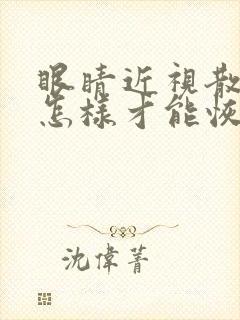 眼睛近視散
怎樣才能恢
沈偉菁